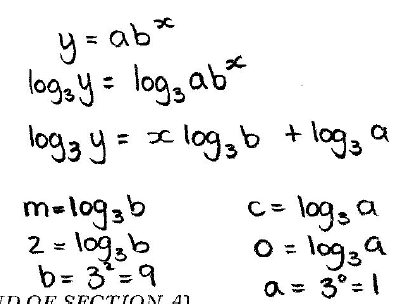 y = ab^x
log₃y = log₃ab^x
log₃y = x log₃b + log₃a
m = log₃b
2 = log₃b
b = 3² = 9
c = log₃a
0 = log₃a
a = 3⁰ = 1
END OF SECTION A]